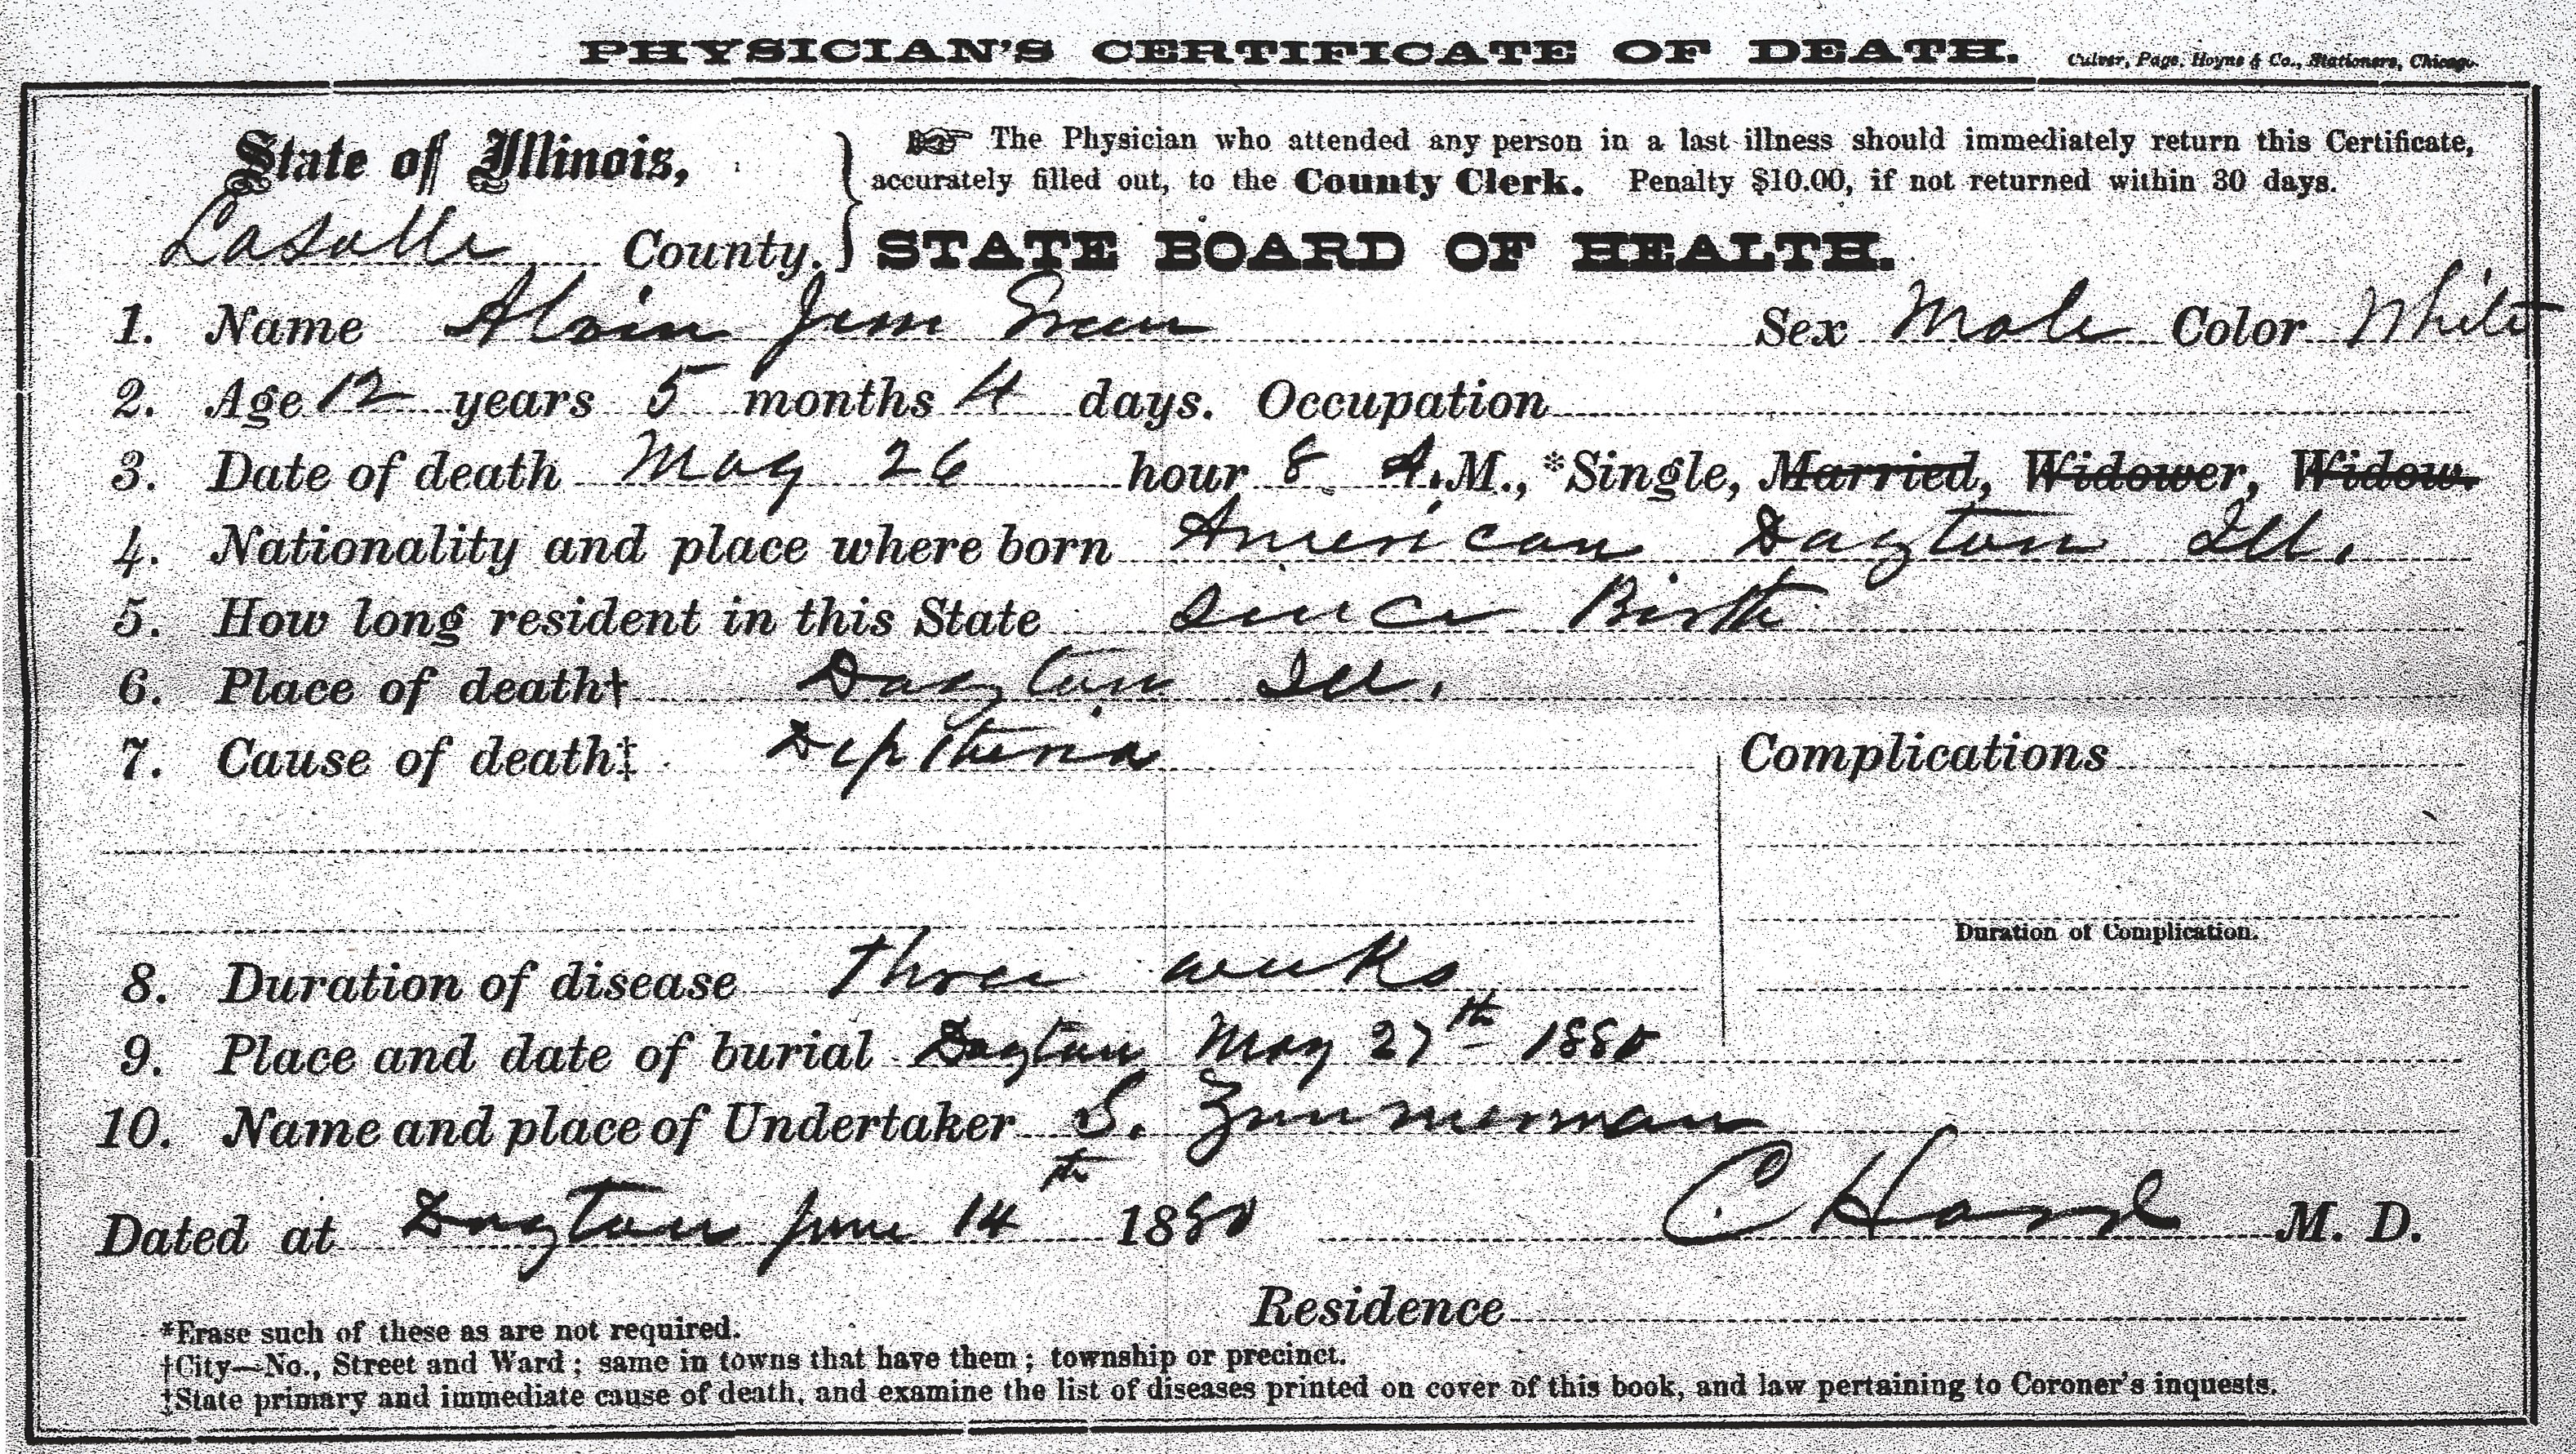 PHYSICIAN'S CERTIFICATE OF DEATH. Culver, Page, Hoyne & Co., Stationers, Chicago.
State of Illinois,
LaSalle County.
☞ The Physician who attended any person in a last illness should immediately return this Certificate,
accurately filled out, to the County Clerk. Penalty $10.00, if not returned within 30 days.
STATE BOARD OF HEALTH.
1. Name Alvin Green Sex Male Color White
2. Age 12 years 5 months 4 days. Occupation
3. Date of death May 26 hour 8 A.M., *Single, Married, Widower, Widow.
4. Nationality and place where born American Dayton Ill.
5. How long resident in this State since Birth
6. Place of death† Dayton Ill.
7. Cause of death‡ Diptheria Complications
Duration of Complication.
8. Duration of disease three weeks
9. Place and date of burial Dayton May 27th 1880
10. Name and place of Undertaker S. Zimmerman
Dated at Dayton June 14th 1880 C Hard M. D.
Residence
*Erase such of these as are not required.
†City—No., Street and Ward; same in towns that have them; township or precinct.
‡State primary and immediate cause of death, and examine the list of diseases printed on cover of this book, and law pertaining to Coroner's inquests.